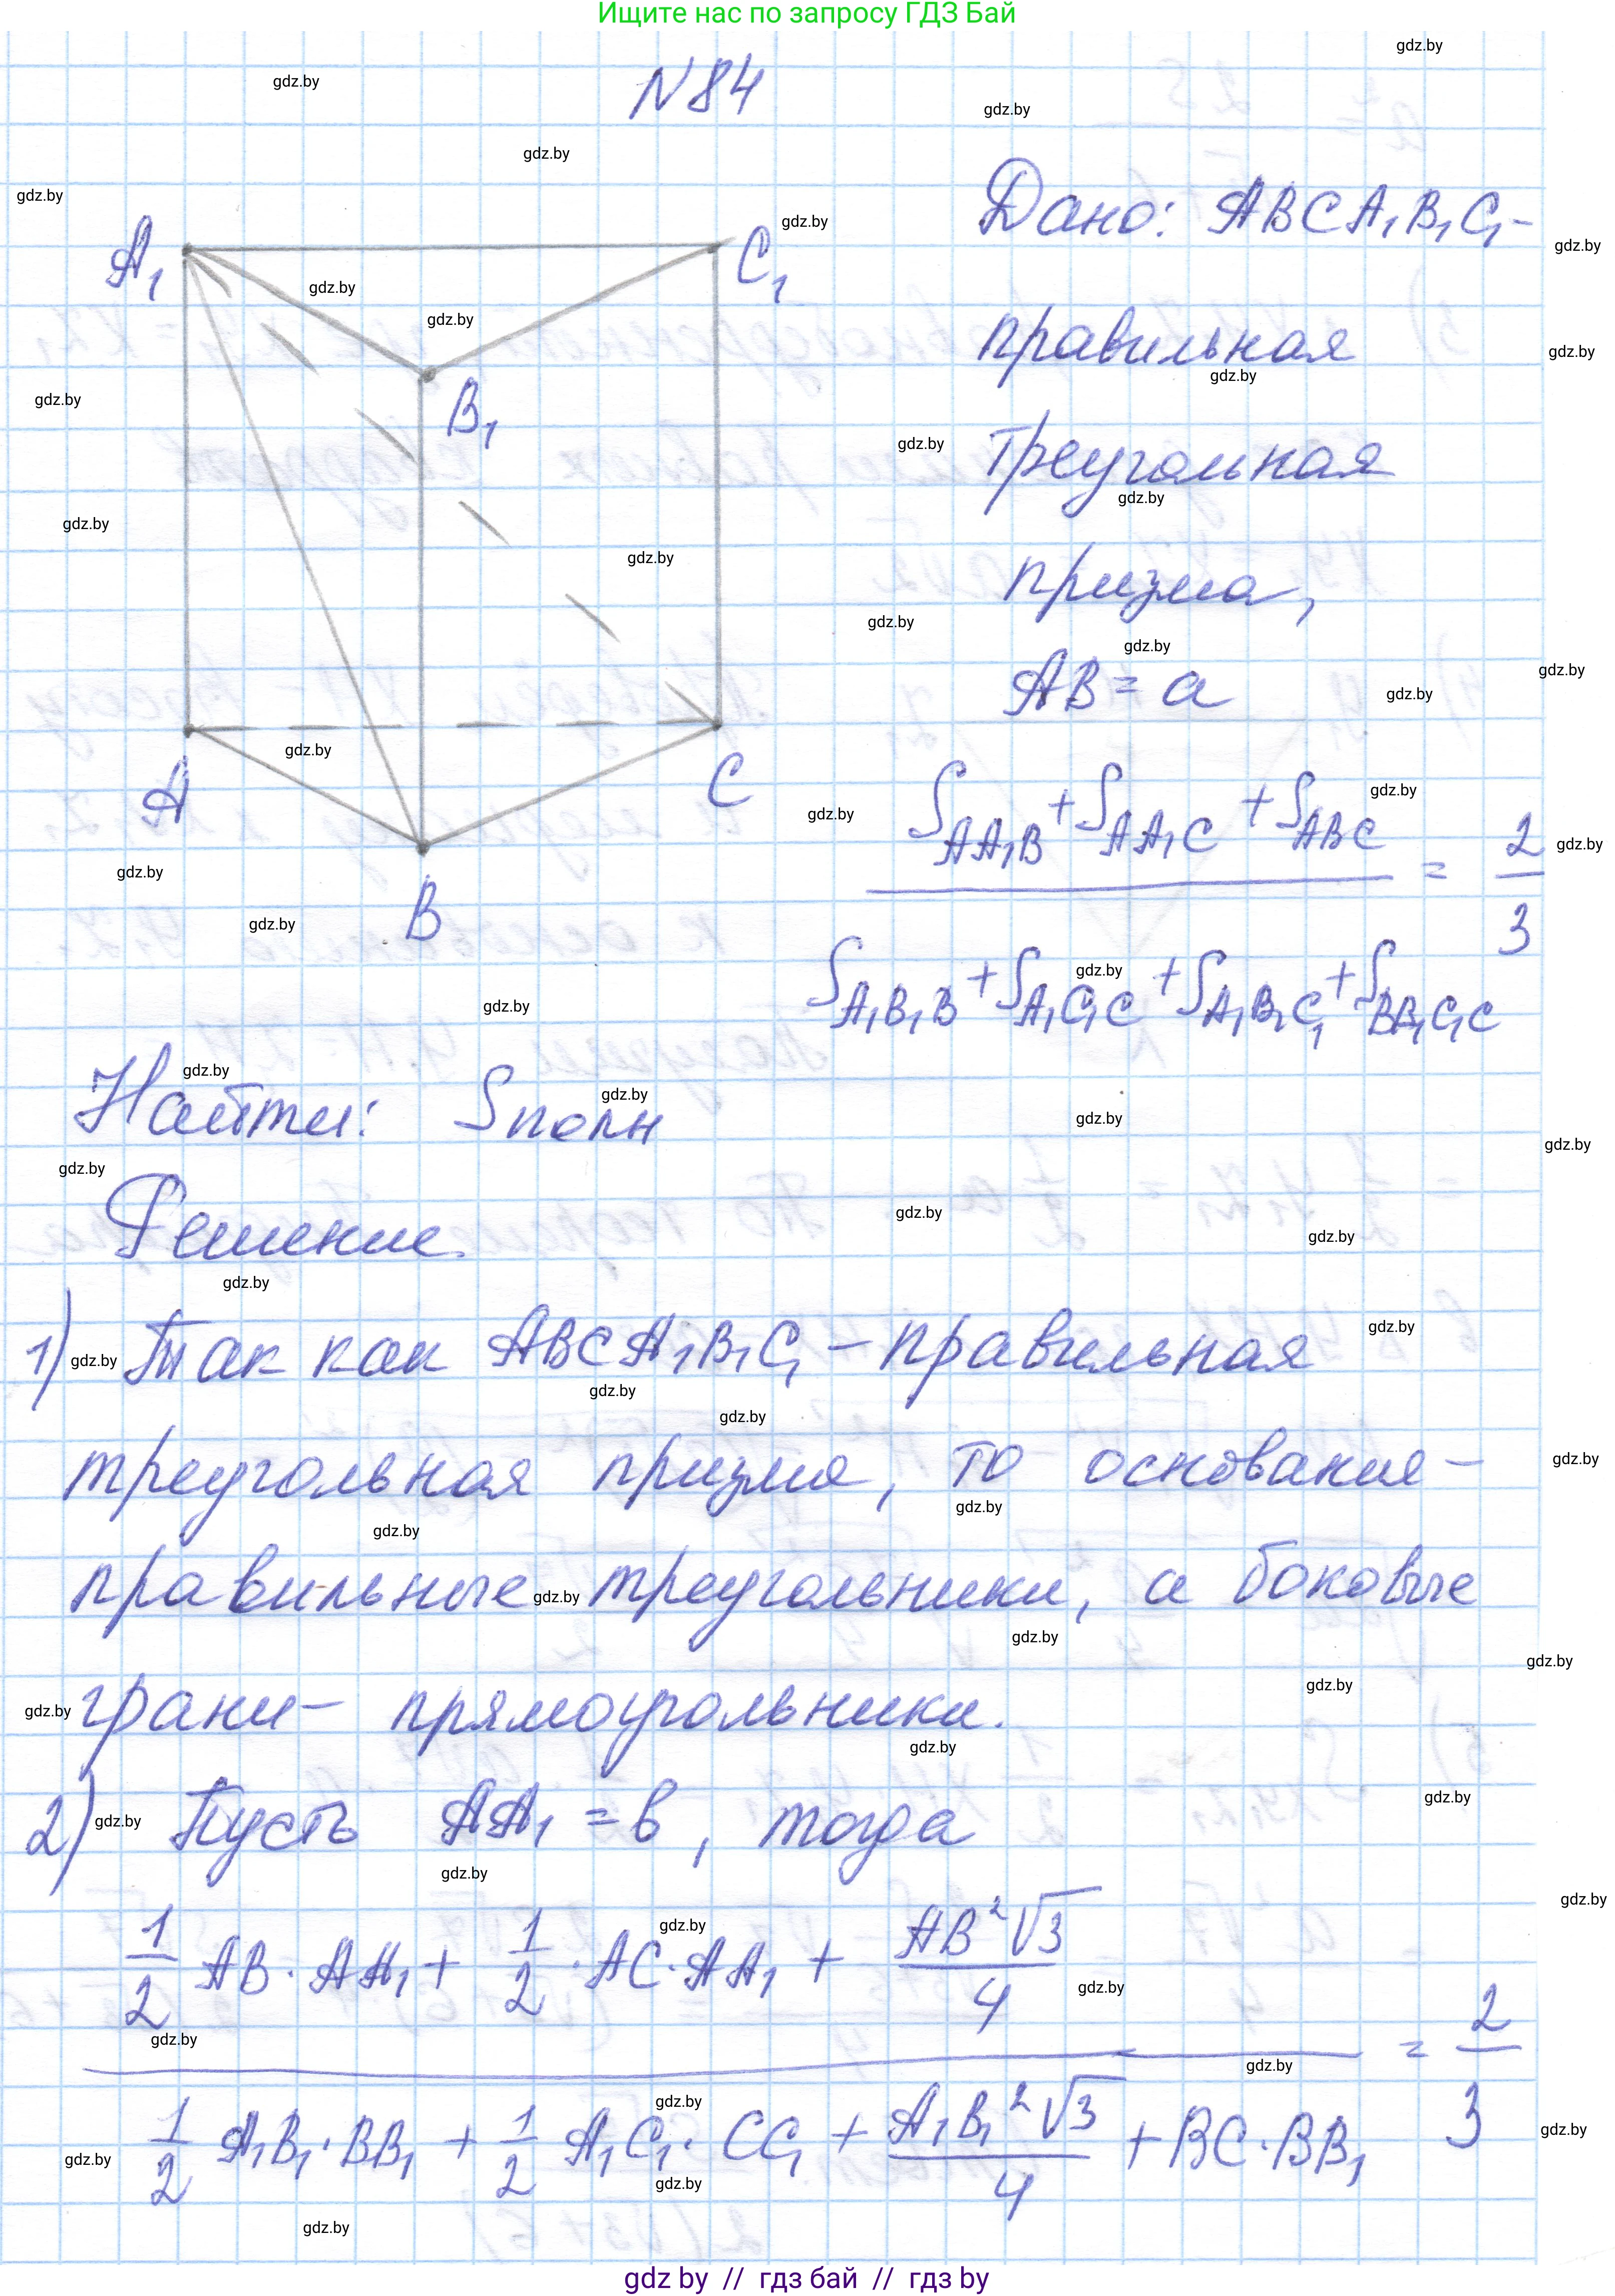 Ищите нас по запросу ГДЗ Бай
N84
Дано: ABCA₁B₁C₁ –
правильная
треугольная
призма,
AB = a
(S_AA₁B + S_AA₁C + S_ABC) / (S_A₁B₁B + S_A₁C₁C + S_A₁B₁C₁ + S_BB₁C₁C) = 2/3
A₁ C₁
B₁
A C
B
Найти: Sполн
Решение.
1) Так как ABCA₁B₁C₁ – правильная
треугольная призма, то основания –
правильные треугольники, а боковые
грани – прямоугольники.
2) Пусть AA₁ = b, тогда
(1/2 AB · AA₁ + 1/2 · AC · AA₁ + AB²√3/4) / (1/2 A₁B₁ · BB₁ + 1/2 A₁C₁ · CC₁ + A₁B₁²√3/4 + BC · BB₁) = 2/3
gdz by // гдз бай // гдз by
gdz.by